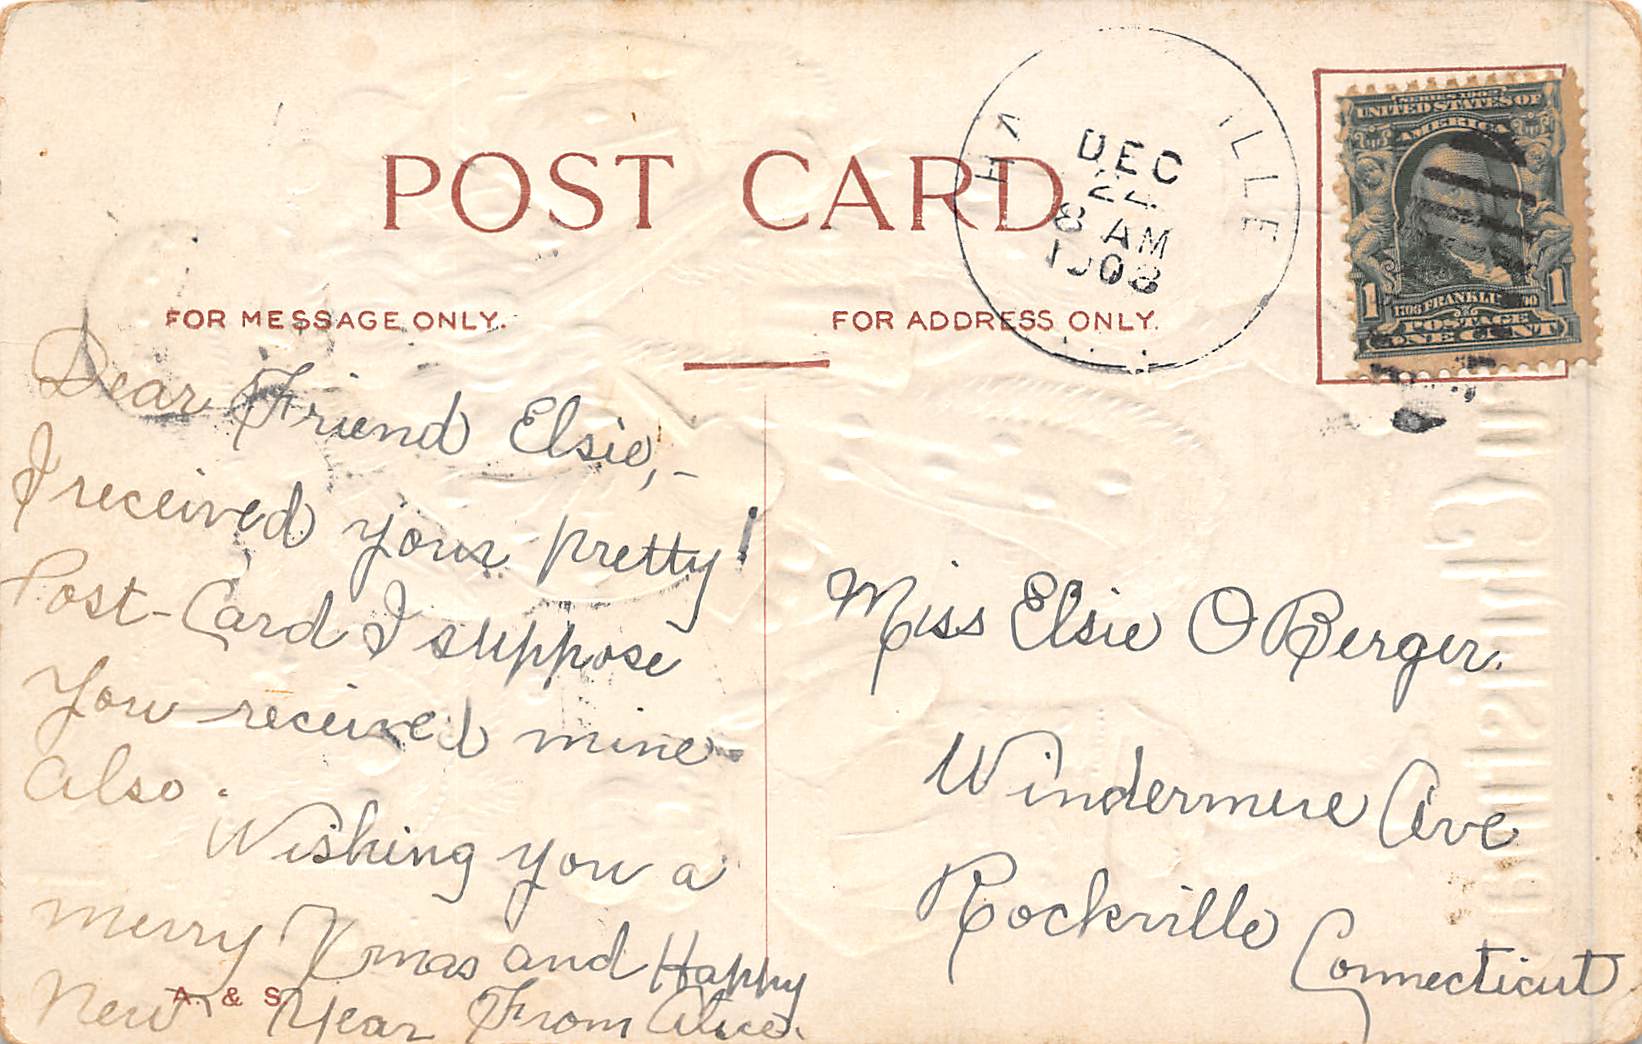 POST CARD
FOR MESSAGE ONLY.
FOR ADDRESS ONLY.
HA ILLE
DEC
22
8 AM
1908
SERIES 1902
UNITED STATES OF
AMERICA
1 FRANKLIN 1
POSTAGE
ONE CENT
Dear Friend Elsie,-
I received your pretty
Post-Card I suppose
you received mine
also.
Wishing you a
merry Xmas and Happy
New Year From Alice.
A. & S.
Miss Elsie O Berger.
Windermere Ave
Rockville
Connecticut